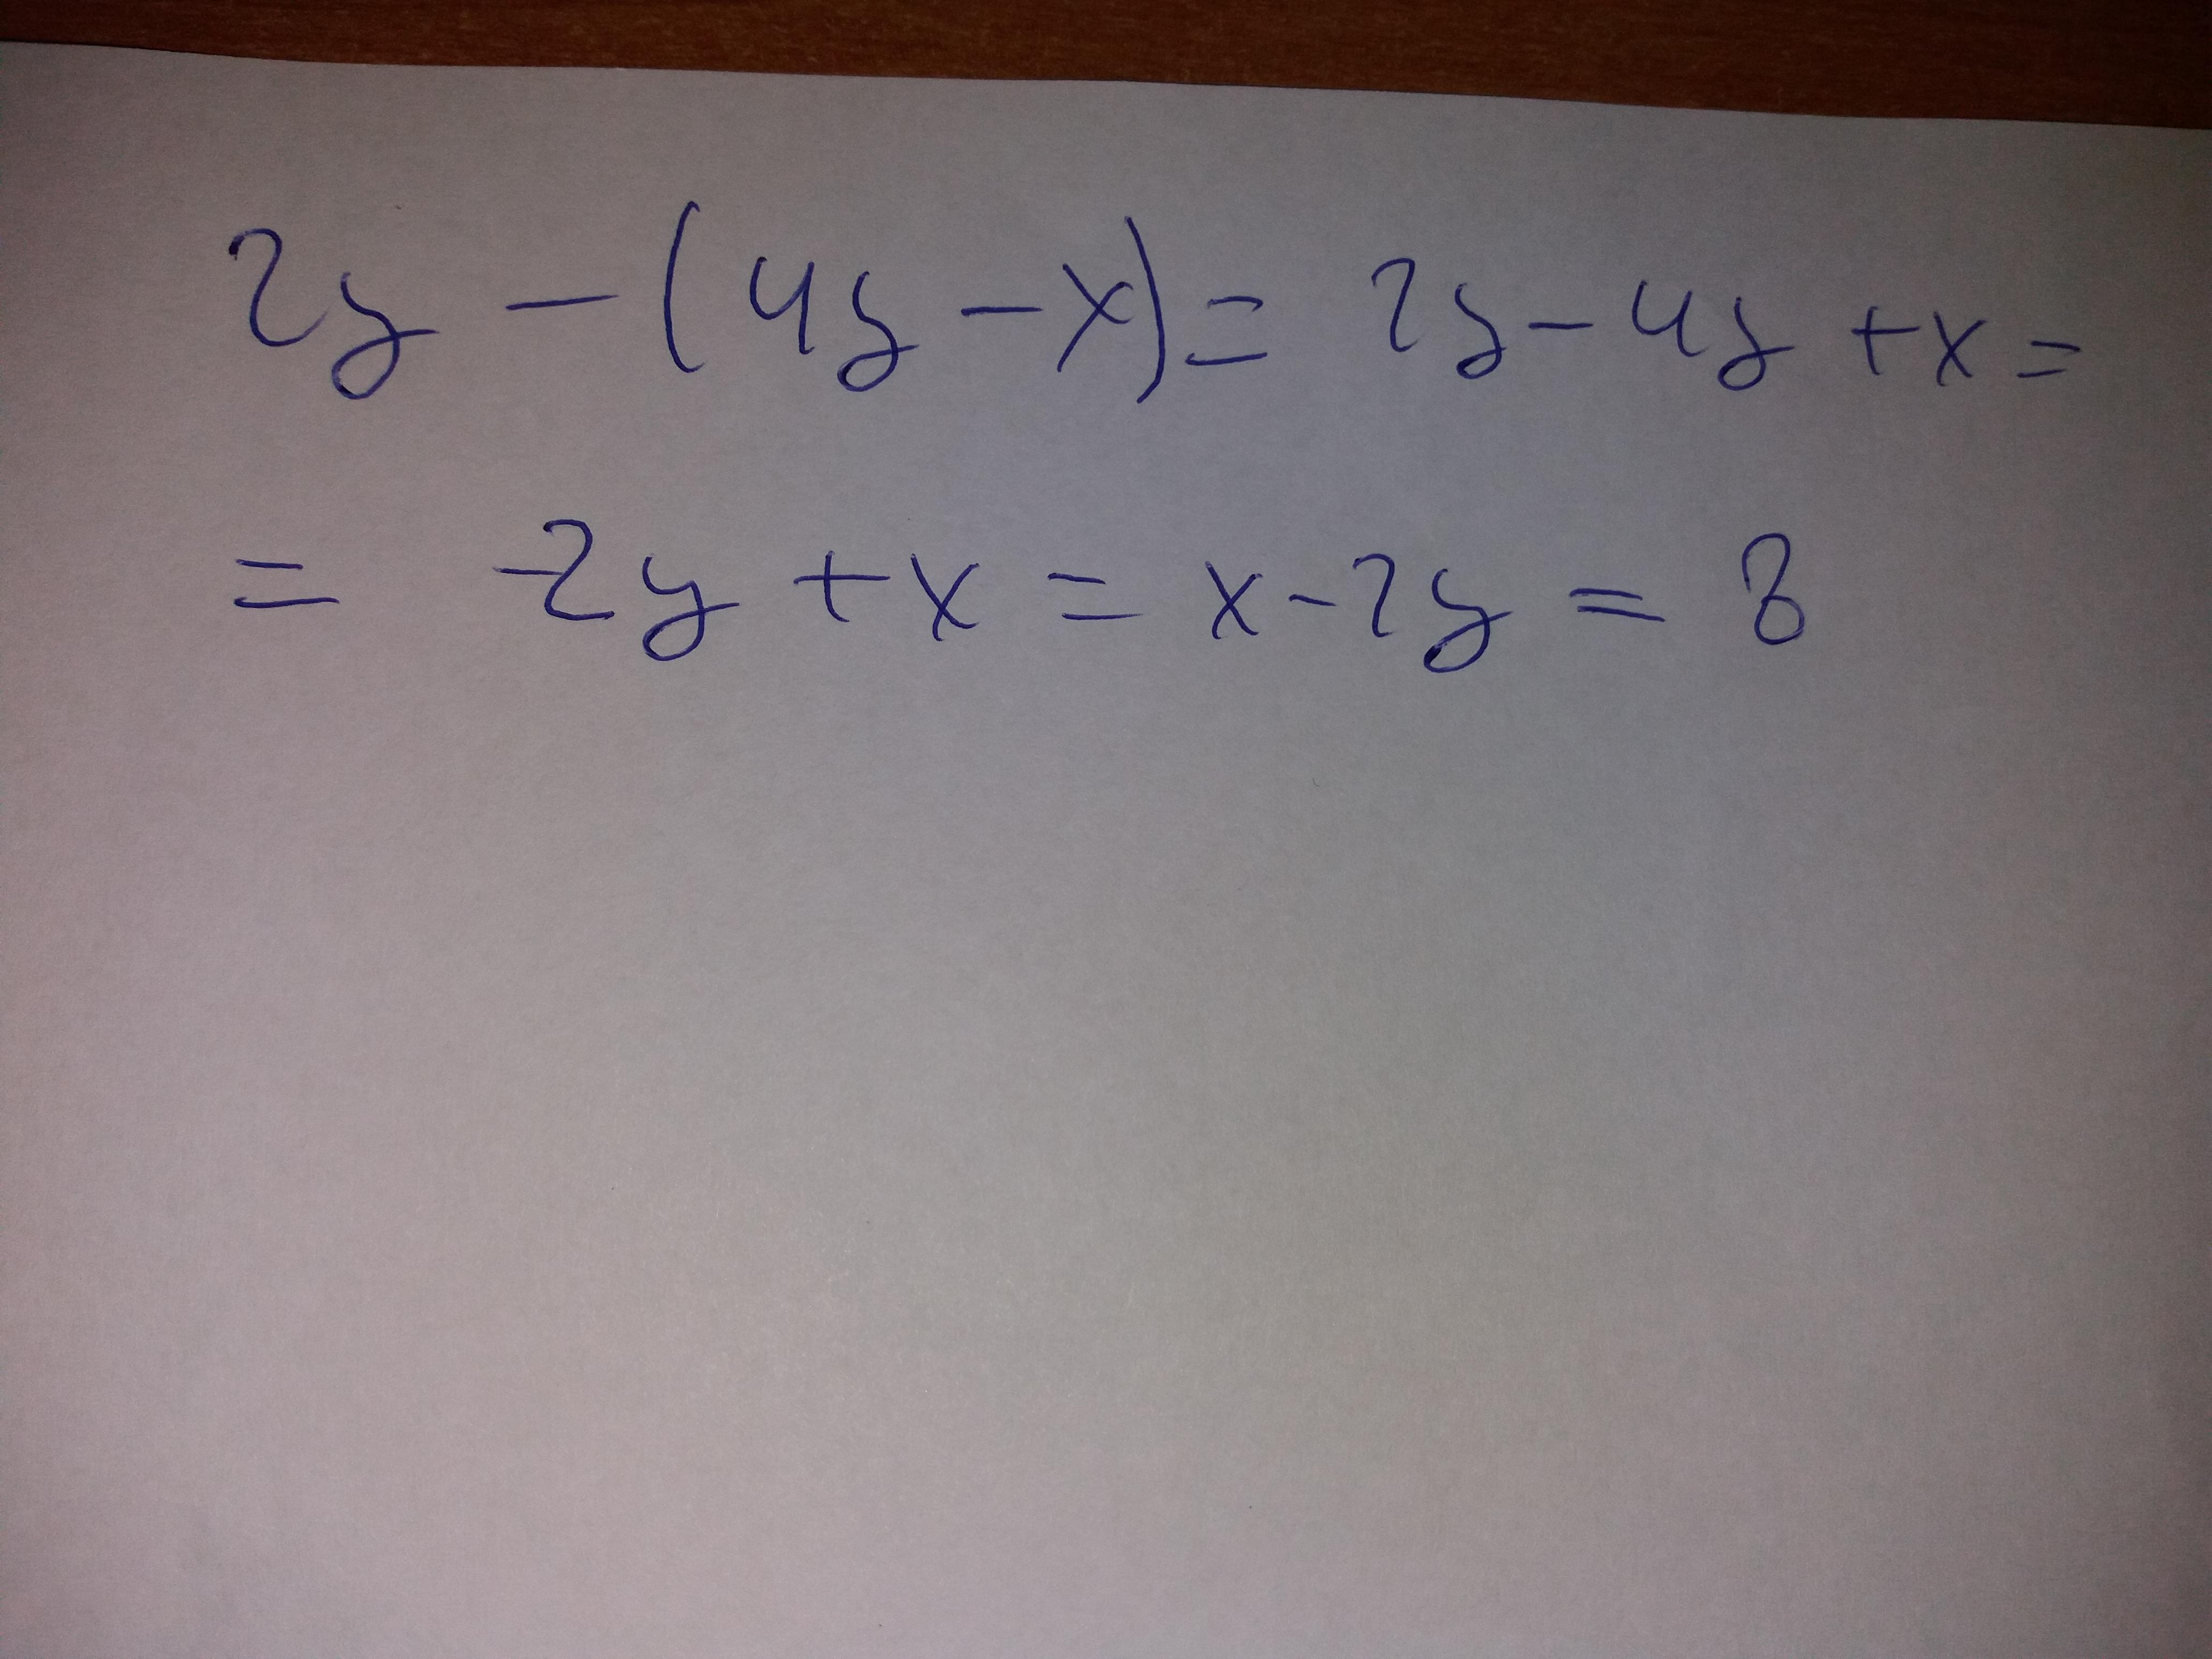 2y - (4y - x) = 2y - 4y + x =
= -2y + x = x - 2y = 8